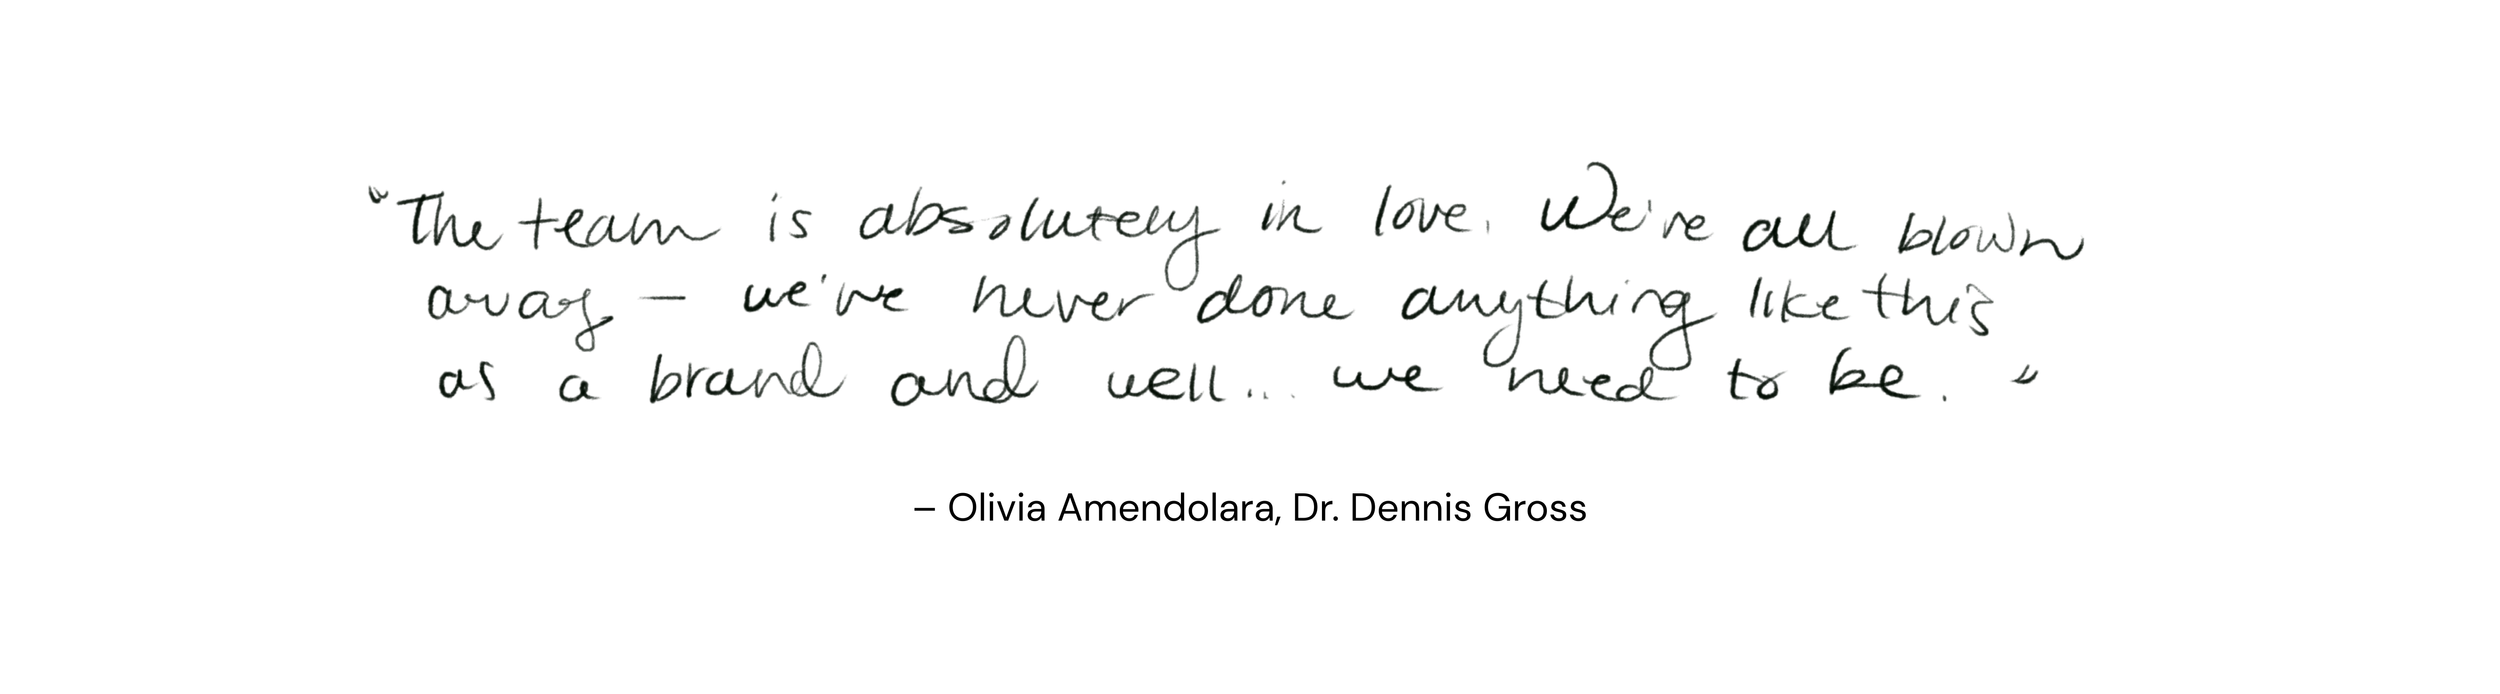 “The team is absolutely in love. We're all blown
away — we've never done anything like this
as a brand and well... we need to be.”
— Olivia Amendolara, Dr. Dennis Gross